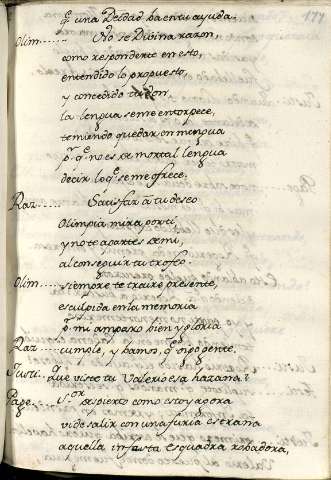 177
q̃ una Deidad ba en tu ayuda.
Olim...... No se Divina razon,
como responderte en esto,
entendido lo propuesto,
y concedido tal don,
la lengua se me entorpece,
temiendo quedar en mengua
p.q̃ no es de mortal lengua
decir lo q̃ se me ofrece.
Raz...... Satisfará tu deseo
Olimpia mira por ti,
y no te apartes de mi,
al conseguir tu trofeo.
Olim.... siempre te traire presente,
esculpida en la memoria
q̃ mi amparo bien y gloria
Raz..... cumple, y bamos, q̃ oigo gente.
Justi. Que viste tu Valerio esa hazana?
Page... S.or despierto como estoy agora
vide salir con una furia estraña
aquella infausta esquadra robadora,